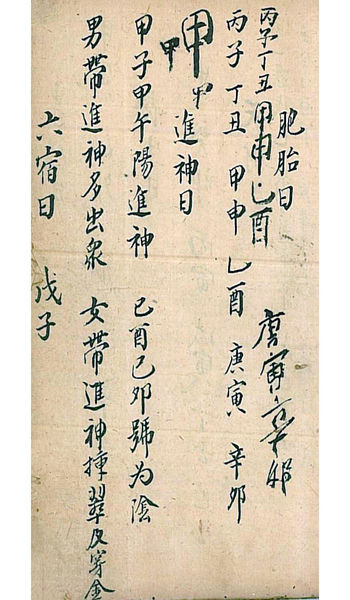 肥胎日
丙子丁丑甲申乙酉 庚寅辛卯
丙子 丁丑 甲申 乙酉 庚寅 辛卯
甲甲甲進神日
甲子甲午陽進神 己酉己卯號为陰
男帶進神多出眾 女帶進神揷翠及穿金
六宿日 戊子